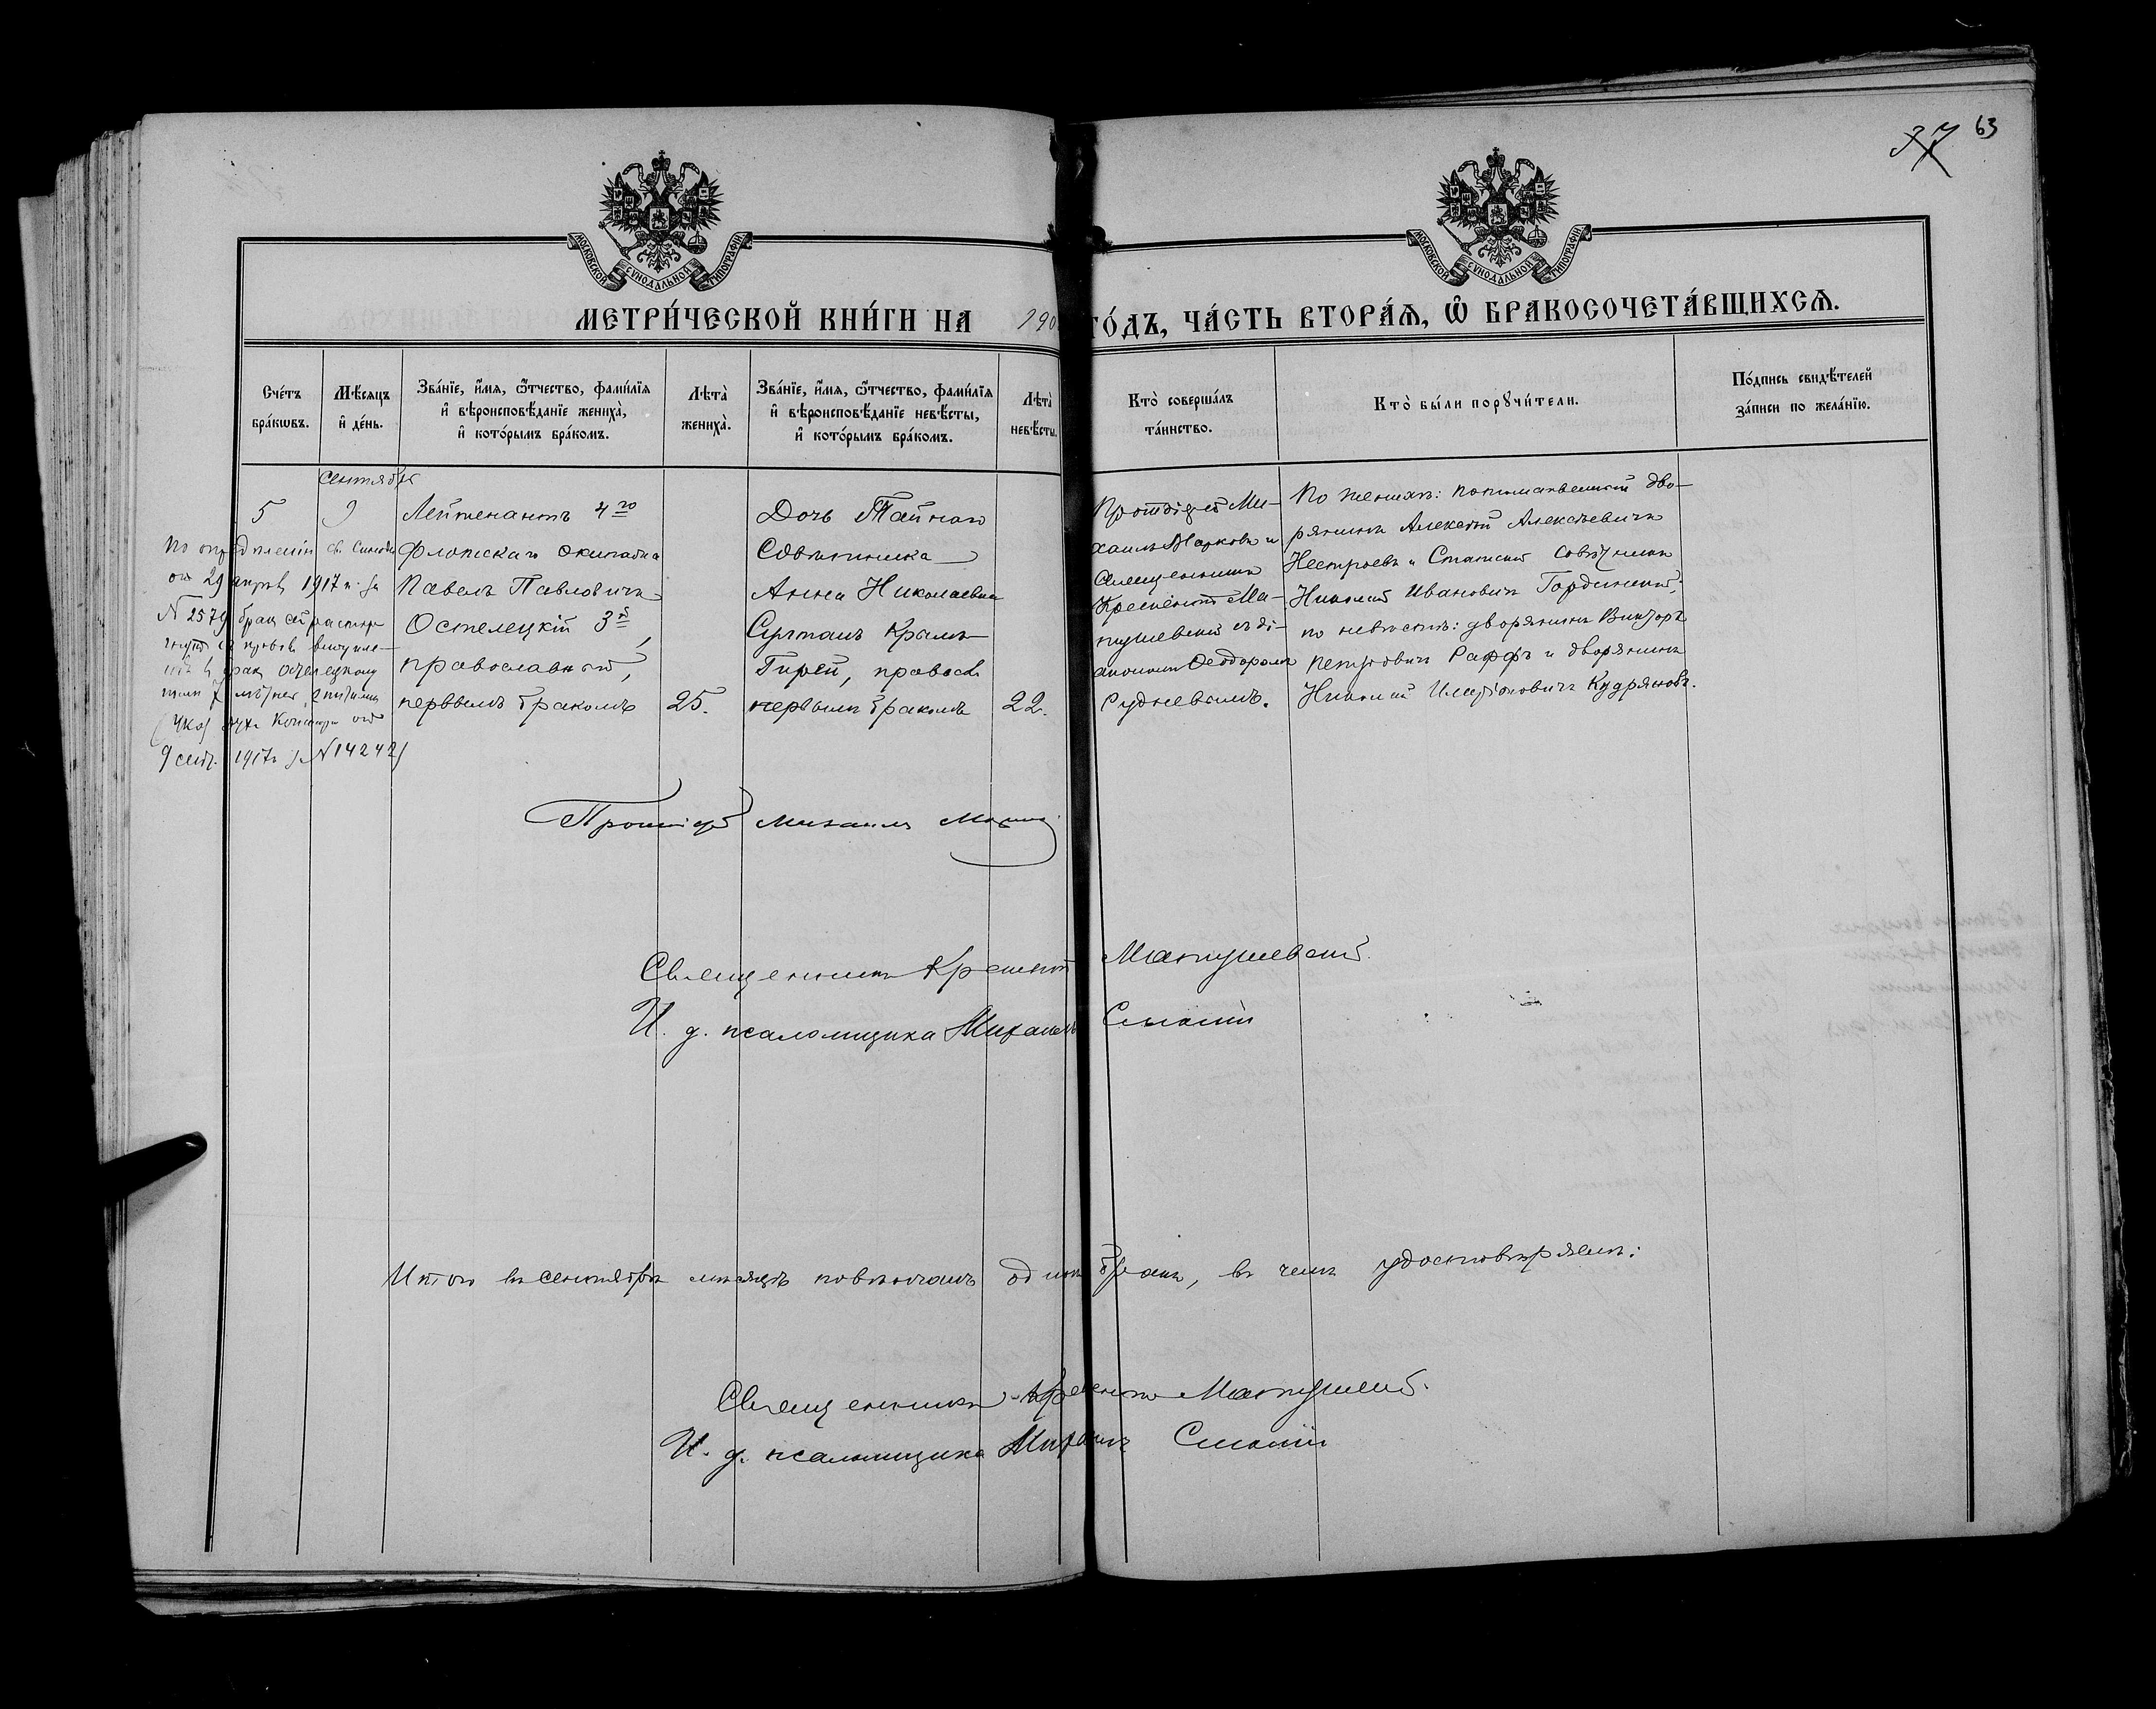 37 63
МОСКОВСКОЙ СѴНОДАЛЬНОЙ ТИПОГРАФІИ
МОСКОВСКОЙ СѴНОДАЛЬНОЙ ТИПОГРАФІИ
МЕТРИ́ЧЕСКОЙ КНИ́ГИ НА 190
ГО́ДЪ, ЧА́СТЬ ВТОРА́Ѧ, Ѡ҆ БРАКОСОЧЕТА́ВШИХСѦ.
Сче́тъ бра́кѡвъ.
Мѣ́сѧцъ и҆ де́нь.
Зва́нїе, и҆́мѧ, ѻ҆́тчество, фамѝлїѧ
и҆ вѣроисповѣ́данїе жениха̀,
и҆ кото́рымъ бра́комъ.
Лѣта̀ жениха̀.
Зва́нїе, и҆́мѧ, ѻ҆́тчество, фамѝлїѧ
и҆ вѣроисповѣ́данїе невѣ́сты,
и҆ кото́рымъ бра́комъ.
Лѣта̀ невѣ́сты.
Кто̀ соверша́лъ та́инство.
Кто̀ бы́ли порꙋчи́тели.
По́дпись свидѣ́телей за́писи по жела́нїю.
Сентября
5
9
Лейтенантъ 4го
Флотскаго Экипажа
Павелъ Павловичъ
Остелецкій 3й,
православный,
первымъ бракомъ
25.
Дочь Тайнаго
Совѣтника
Анна Николаевна
Султанъ Крымъ
Гирей, правосл.
первымъ бракомъ
22.
Протоіерей Ми-
хаилъ Марковъ и
Священникъ
Ма-
тушевскій съ ді-
акономъ Ѳеодоромъ
Рудневымъ.
По женихѣ: потомственный дво-
рянинъ Алексѣй Алексѣевичъ
Нестроевъ и Статскій Совѣтникъ
Николай Ивановичъ Гординскій;
по невѣстѣ: дворянинъ Викторъ
Петровичъ Раффъ и дворянинъ
Николай Кудрявовъ.
По опредѣленію Св. Синода
отъ 29 апрѣля 1917 г. за
N 2579 бракъ сей расторг-
нутъ съ правомъ вступле-
нія въ бракъ Остелецкому
(Указ Дух. Консисторіи отъ
9 сент. 1917 г. N 14242)
Протоіерей Михаилъ Марковъ
Священникъ Матушевскій.
И. д. псаломщика Михаилъ
Итого въ сентябрѣ мѣсяцѣ повѣнчанъ одинъ бракъ, въ чемъ удостовѣряемъ:
Священникъ Матушевскій.
И. д. псаломщика Михаилъ